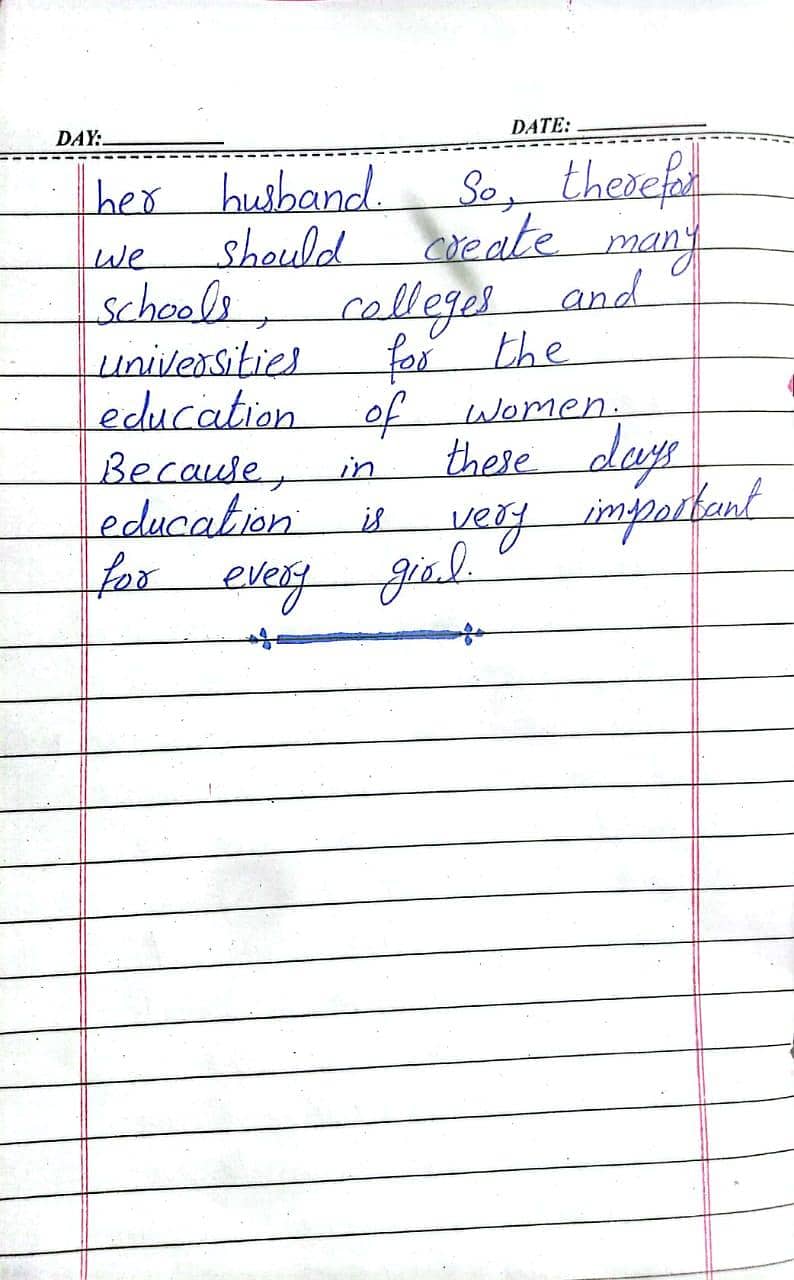 DAY:
DATE:
her husband. So, therefor
we should create many
schools, colleges and
universities for the
education of women.
Because, in these days
education is very important
for every girl.